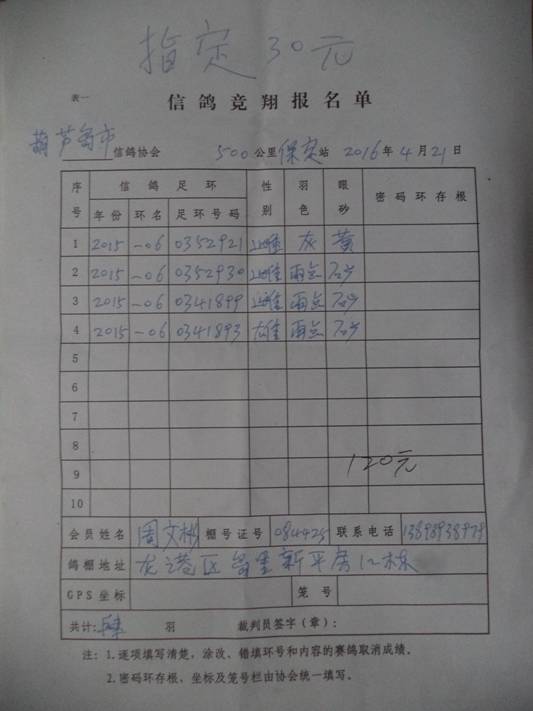 指定30元
表一
信鸽竞翔报名单
葫芦岛市信鸽协会 500公里保定站 2016年4月21日
序号 信鸽足环 性别 羽色 眼砂 密码环存根
年份 环名 足环号码
1 2015 -06 0352921 雌 灰 黄
2 2015 -06 0352930 雌 雨点 砂
3 2015 -06 0341899 雌 雨点 砂
4 2015 -06 0341893 雄 雨点 砂
5
6
7
8
9 120元
10
会员姓名 周文彬 棚号证号 084425 联系电话 13898938979
鸽棚地址 龙港区 新平房 栋
GPS坐标 笼号
共计: 肆 羽 裁判员签字(章):
注: 1.逐项填写清楚,涂改、错填环号和内容的赛鸽取消成绩。
2.密码环存根、坐标及笼号栏由协会统一填写。